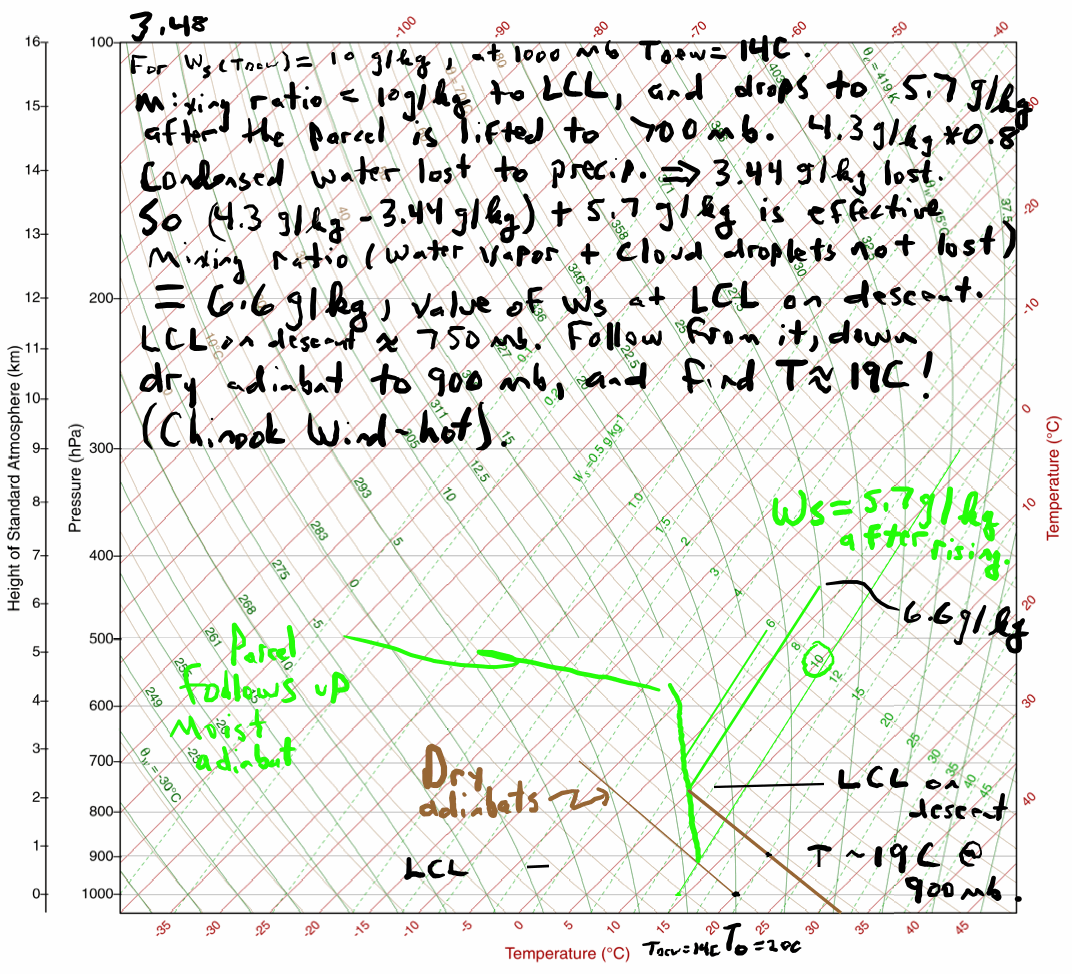 3.48
For Ws(TDew) = 10 g/kg, at 1000 mb TDew = 14C.
Mixing ratio < 10g/kg to LCL, and drops to 5.7 g/kg
after the parcel is lifted to 700 mb. 4.3 g/kg *0.8
Condensed water lost to precip. ⇒ 3.44 g/kg lost.
So (4.3 g/kg - 3.44 g/kg) + 5.7 g/kg is effective
Mixing ratio (water vapor + cloud droplets not lost)
= 6.6 g/kg, value of Ws at LCL on descent.
LCL on descent ≈ 750 mb. Follow from it, down
dry adiabat to 900 mb, and find T≈ 19C!
(Chinook Wind-hot).
-100 -90 -80 -70 -60 -50 -40
Height of Standard Atmosphere (km)
16
15
14
13
12
11
10
9
8
7
6
5
4
3
2
1
0
Pressure (hPa)
100
200
300
400
500
600
700
800
900
1000
-20
-10
0
10
20
30
40
Temperature (°C)
Ws = 0.5 g kg-1
1.0
1.5
2
3
4
6
8
10
12
15
20
25
30
35
40
45
15
12.5
10
5
0
-5
293
283
275
268
261
249
θw = -30°C
Ws = 5.7g/kg
after rising.
6.6g/kg
Parcel
Follows up
Moist
adiabat
Dry
adiabats
LCL on
descent
LCL
T ~19C @
900mb.
-35 -30 -25 -20 -15 -10 -5 0 5 10 15 20 25 30 35 40 45
Temperature (°C)
TDew=14C To =20C